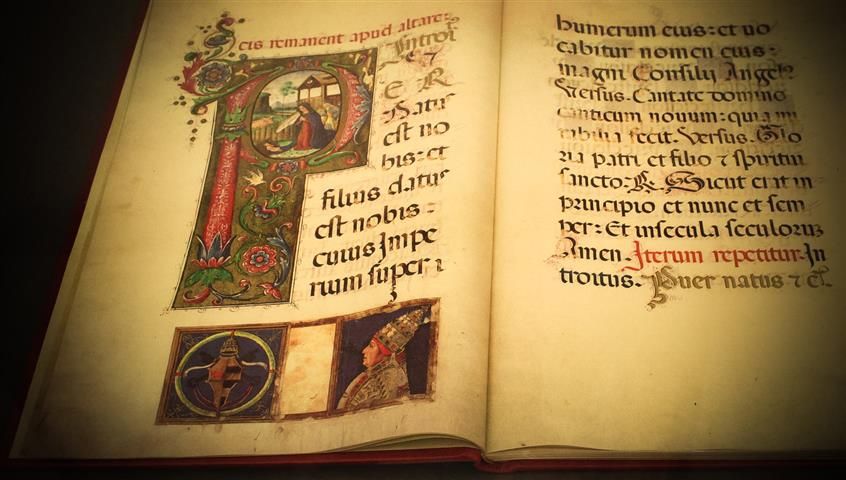 ceis remanent apud altare:
Introit
P
E R
Natus
est no
bis: et
filius datus
est nobis:
cuius Impe
rium super
humerum eius: et uo
cabitur nomen eius:
magni Consilij Angelus
Versus. Cantate domino
canticum nouum: quia mi
rabilia fecit. Versus. Glo
ria patri et filio ⁊ spiritui
sancto: R. Sicut erat in
principio et nunc et sem
per: Et in secula seculorum
Amen. Iterum repetitur. In
troitus. Puer natus ⁊ c̃.